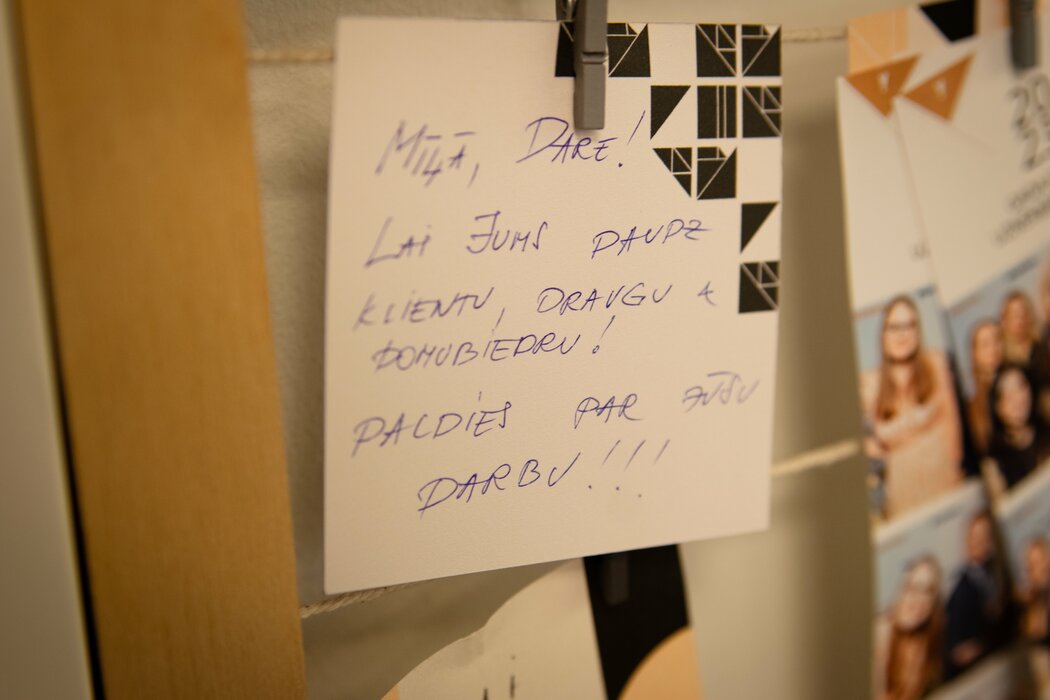 MĪĻĀ, DACE!
LAI JUMS DAUDZ
KLIENTU, DRAUGU &
DOMUBIEDRU!
PALDIES PAR JŪSU
DARBU!!!
20